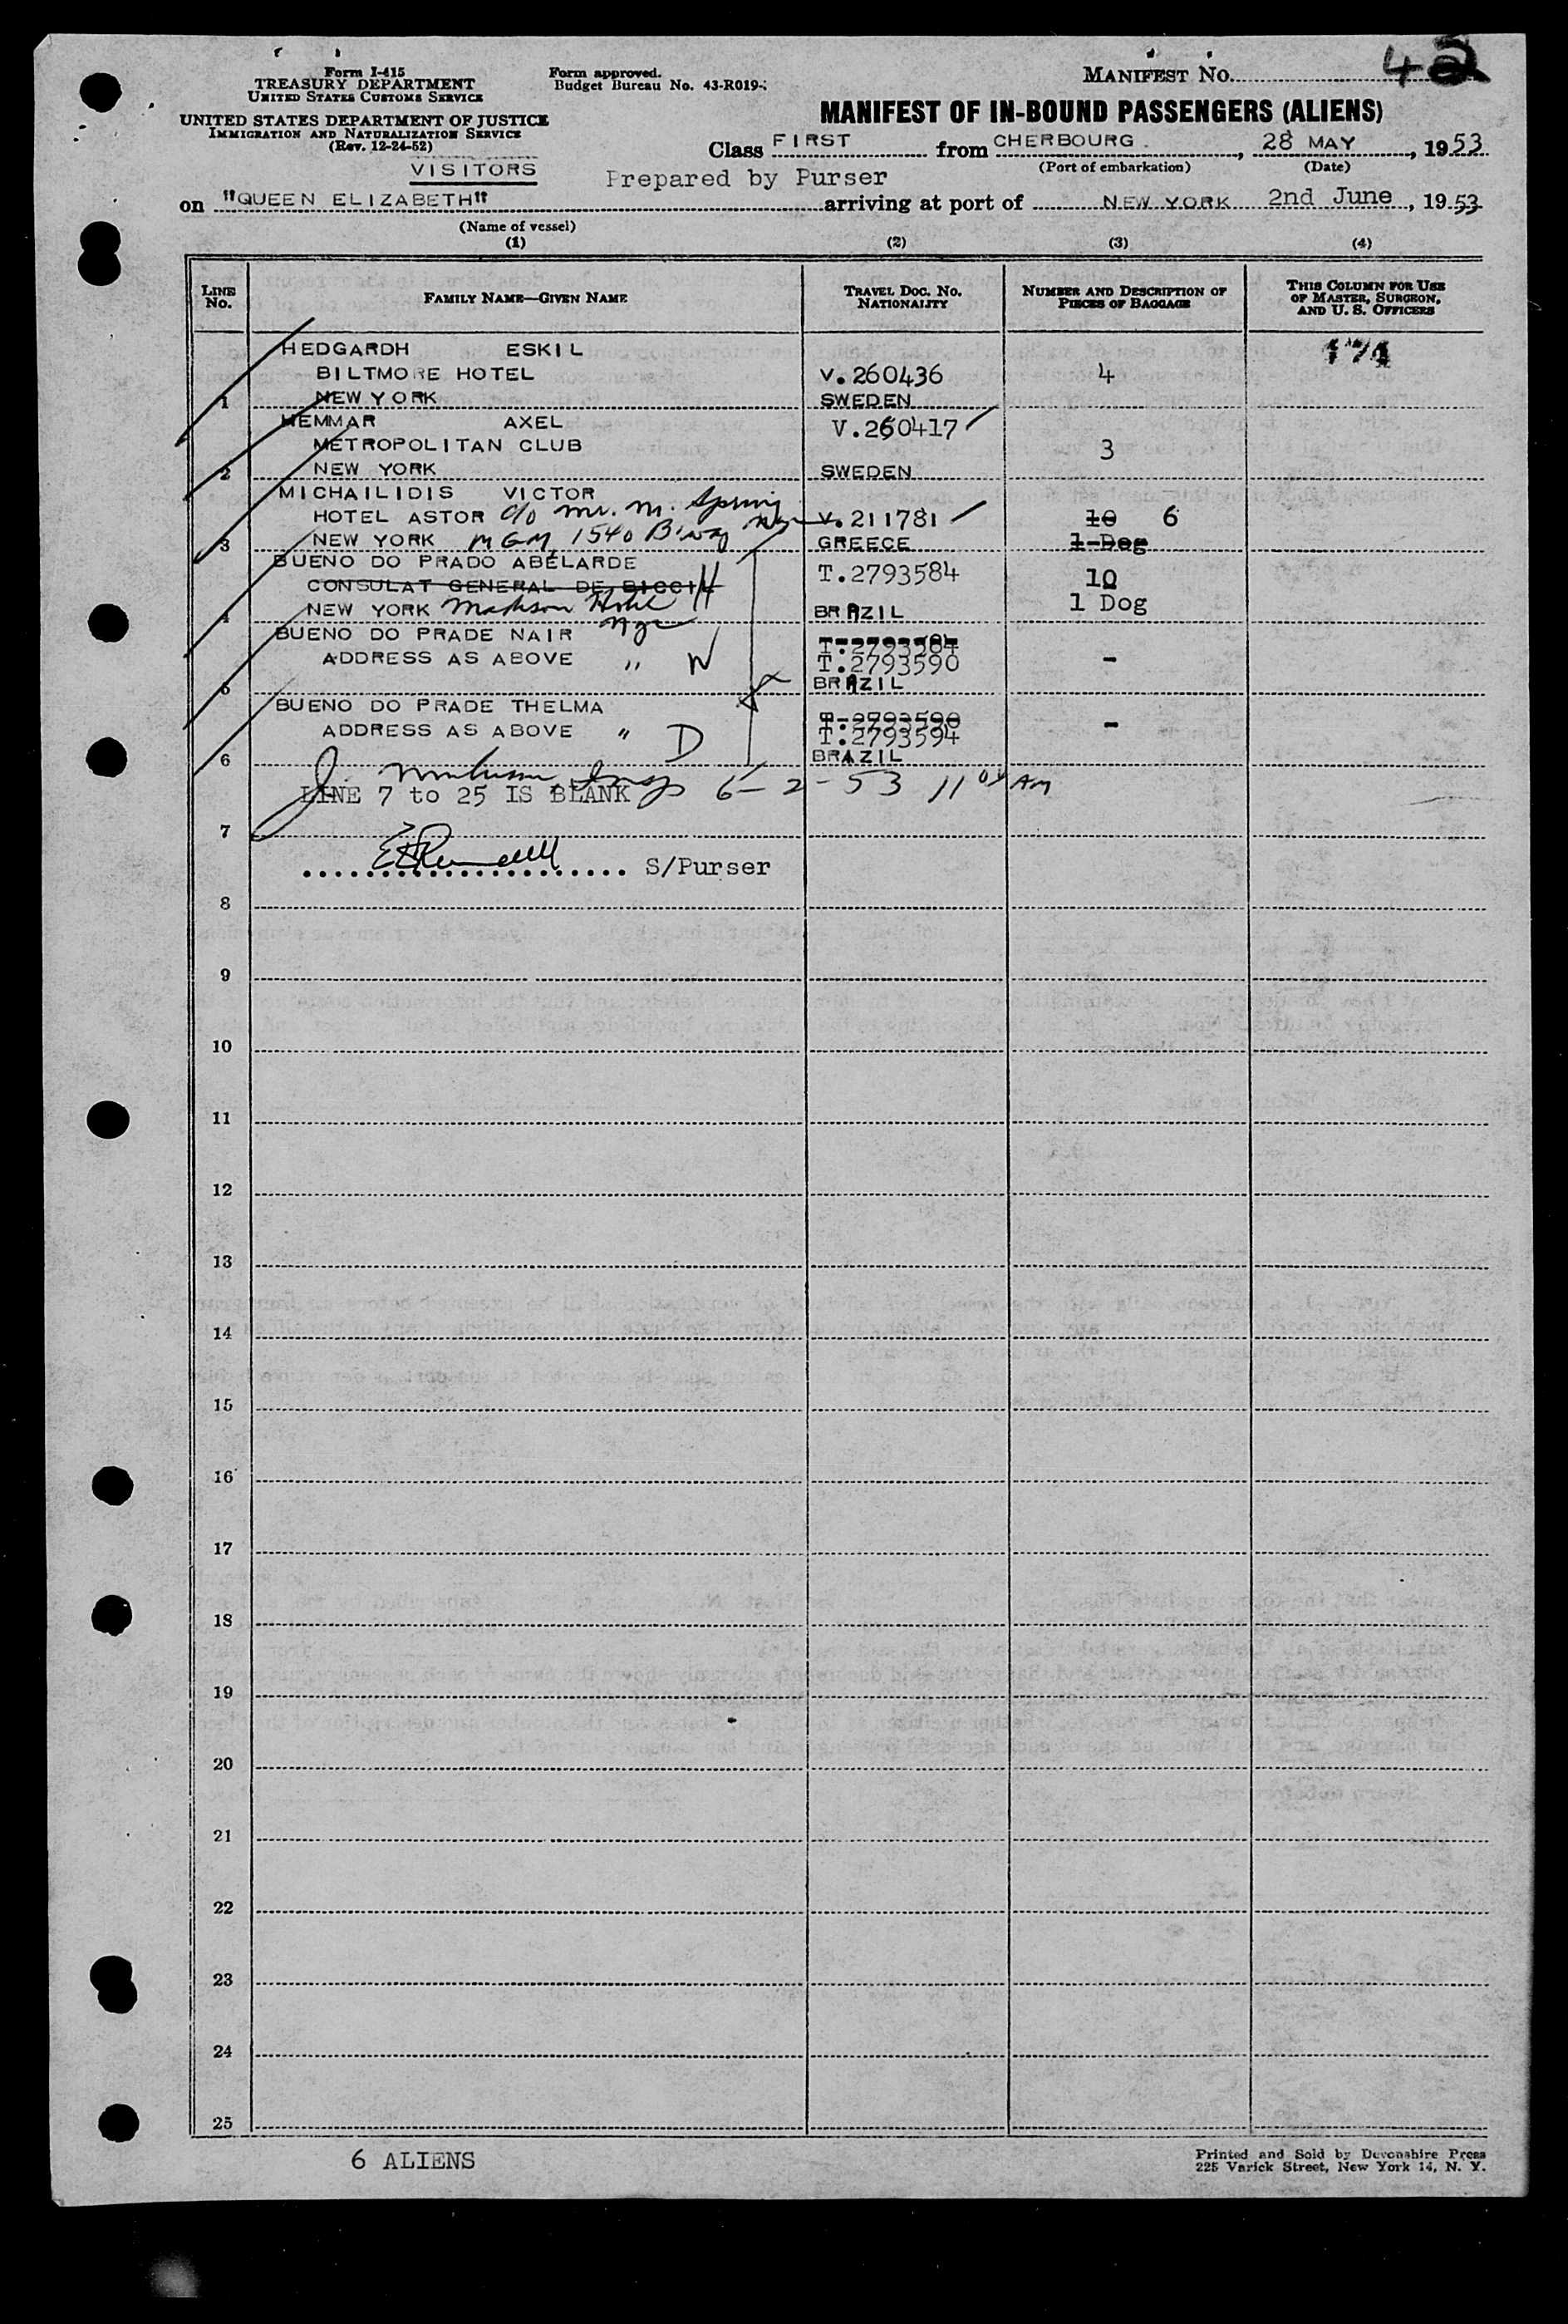 Form I-415
TREASURY DEPARTMENT
UNITED STATES CUSTOMS SERVICE
UNITED STATES DEPARTMENT OF JUSTICE
IMMIGRATION AND NATURALIZATION SERVICE
(Rev. 12-24-52)
Form approved.
Budget Bureau No. 43-R019-
MANIFEST NO. 42
MANIFEST OF IN-BOUND PASSENGERS (ALIENS)
Class FIRST from CHERBOURG, 28 MAY, 1953
(Port of embarkation) (Date)
VISITORS
Prepared by Purser
on "QUEEN ELIZABETH" arriving at port of NEW YORK 2nd June, 1953
(Name of vessel)
(1) (2) (3) (4)
LINE NO. FAMILY NAME—GIVEN NAME TRAVEL DOC. NO. NATIONALITY NUMBER AND DESCRIPTION OF PIECES OF BAGGAGE THIS COLUMN FOR USE OF MASTER, SURGEON, AND U. S. OFFICERS
HEDGARDH ESKIL 174
BILTMORE HOTEL V.260436 4
1 NEW YORK SWEDEN
HEMMAR AXEL V.260417
METROPOLITAN CLUB 3
2 NEW YORK SWEDEN
MICHAILIDIS VICTOR
HOTEL ASTOR c/o Mr. M. Spring V.211781 10 6
3 NEW YORK MGM, 1540 B'way NYC GREECE 1 Dog
BUENO DO PRADO ABELARDE T.2793584 10
CONSULAT GENERAL DE H
4 NEW YORK Madison Hotel BRAZIL 1 Dog
NYC
BUENO DO PRADE NAIR T.2793584
ADDRESS AS ABOVE " W T.2793590 -
5 BRAZIL
BUENO DO PRADE THELMA T.2793590
ADDRESS AS ABOVE " D T.2793594 -
6 BRAZIL
J. Insp 6-2-53 11 00 AM
LINE 7 to 25 IS BLANK
7
S/Purser
8
9
10
11
12
13
14
15
16
17
18
19
20
21
22
23
24
25
6 ALIENS
Printed and Sold by Devonshire Press
225 Varick Street, New York 14, N. Y.